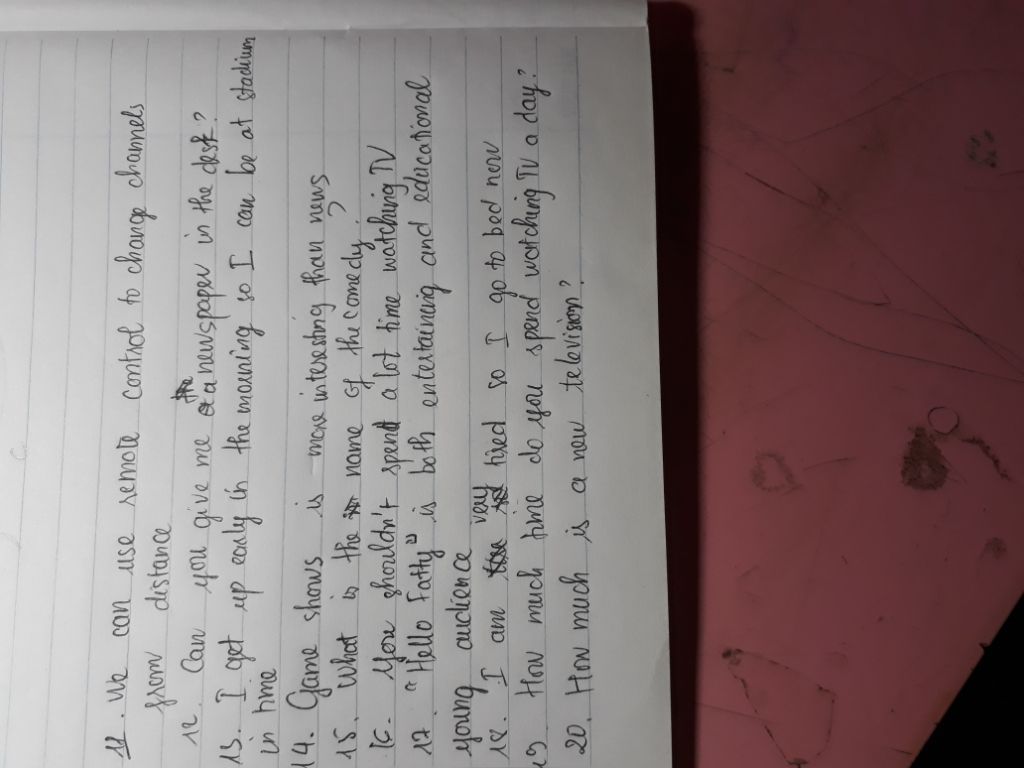 11. We can use remote control to change channels
from distance
12. Can you give me a newspaper in the desk?
13. I get up early in the morning so I can be at stadium
in time
14. Game shows is more interesting than news
15. What is the name of the comedy?
16. You shouldn't spend a lot time watching TV
17 "Hello Fatty" is both entertaining and educational
young audience
18. I am very tired so I go to bed now
19. How much time do you spend watching TV a day?
20. How much is a new television?